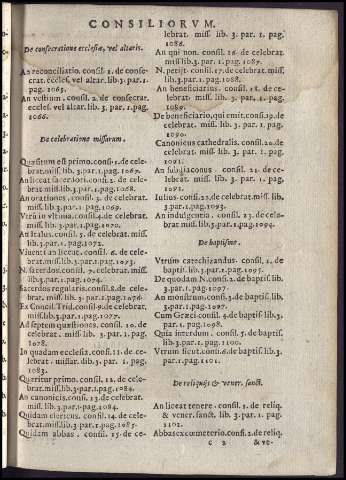 CONSILIORVM.
De consecratione ecclesiæ, vel altaris.
An reconciliatio. consil. 1. de consecrat.
eccles. vel altar. lib. 3. par. 1.
pag. 1065.
An vestium. consil. 2. de consecrat.
eccles. vel altar. lib. 3. par. 1. pag.
1066.
De celebratione missarum.
Quæsitum est primo. consi. 1. de celebrat.
miss. lib. 3. par. 1. pag. 1067.
An liceat sacerdoti. consi. 2. de celebrat.
miss. lib. 3. par. 1. pag. 1068.
An orationes. consil. 3. de celebrat.
miss. lib. 3. par. 1. pag. 1069.
Vtrũ in vltima. consil. 4. de celebrat.
miss. lib. 3. par. 1. pag. 1070.
An Italus. consil. 5. de celebrat. miss.
lib. 3. par. 1. pag. 1072.
Viuent. an liceat. consil. 6. de celebrat.
miss. lib. 3. par. 1. pag. 1073.
N. sacerdos. consil. 7. celebrat. miss.
lib. 3. par. 1. pag. 1074.
Sacerdos regularis. consil. 8. de celebrat.
miss. lib. 3. par. 1. pag. 1076.
Ex Concil. Trid. consil. 9. de celebrat.
miss. lib. 3. par. 1. pag. 1077.
Ad septem quæstiones. consil. 10. de
celebrat. miss. lib. 3. par. 1. pag.
1078.
In quadam ecclesia. consil. 11. de celebrat.
missar. lib. 3. par. 1. pag.
1083.
Quæritur primo. consil. 12. de celebrat.
miss. lib. 3. par. 1. pag. 1084.
An canonicis. consil. 13. de celebrat.
miss. lib. 3. par. 1. pag. 1084.
Quidam clericus. consil. 14. de celebrat.
miss. lib. 3. par. 1. pag. 1085.
Quidam abbas. consil. 15. de celebrat.
miss. lib. 3. par. 1. pag.
1086.
An qui non. consil. 16. de celebrat.
miss. lib. 3. par. 1. pag. 1087.
N. petijt. consil. 17. de celebrat. miss.
lib. 3. par. 1. pag. 1088.
An beneficiarius. consil. 18. de celebrat.
miss. lib. 3. par. 1. pag.
1089.
De beneficiario, qui emit. consi. 19. de
celebrat. miss. lib. 3. par. 1. pag.
1090.
Canonicus cathedralis. consil. 20. de
celebrat. miss. lib. 3. par. 1. pag.
1091.
An subdiaconus. consil. 21. de celebrat.
miss. lib. 3. par. 1. pag.
1092.
Iulius. consil. 22. de celebrat. miss. lib.
3. par. 1. pag. 1093.
An indulgentia. consil. 23. de celebrat.
miss. lib. 3. par. 1. pag. 1094.
De baptismo.
Vtrum catechizandus. consil. 1. de
baptis. lib. 3. par. 1. pag. 1095.
De quodam N. consi. 2. de baptis. lib.
3. par. 1. pag. 1097.
An monstrum. consil. 3. de baptis. lib.
3. par. 1. pag. 1097.
Cum Græci. consil. 4. de baptis. lib. 3.
par. 1. pag. 1098.
Quia interdum. consil. 5. de baptis.
lib. 3. par. 1. pag. 1100.
Vtrum sicut. consil. 6. de baptis. lib.
3. par. 1. pag. 1101.
De reliquijs & vener. sanct.
An liceat tenere. consil. 1. de reliq.
& vener. sanct. lib. 3. par. 1. pag.
1102.
Abbas ex cœmeterio. consil. 2. de reliq.
c 2 & ve-